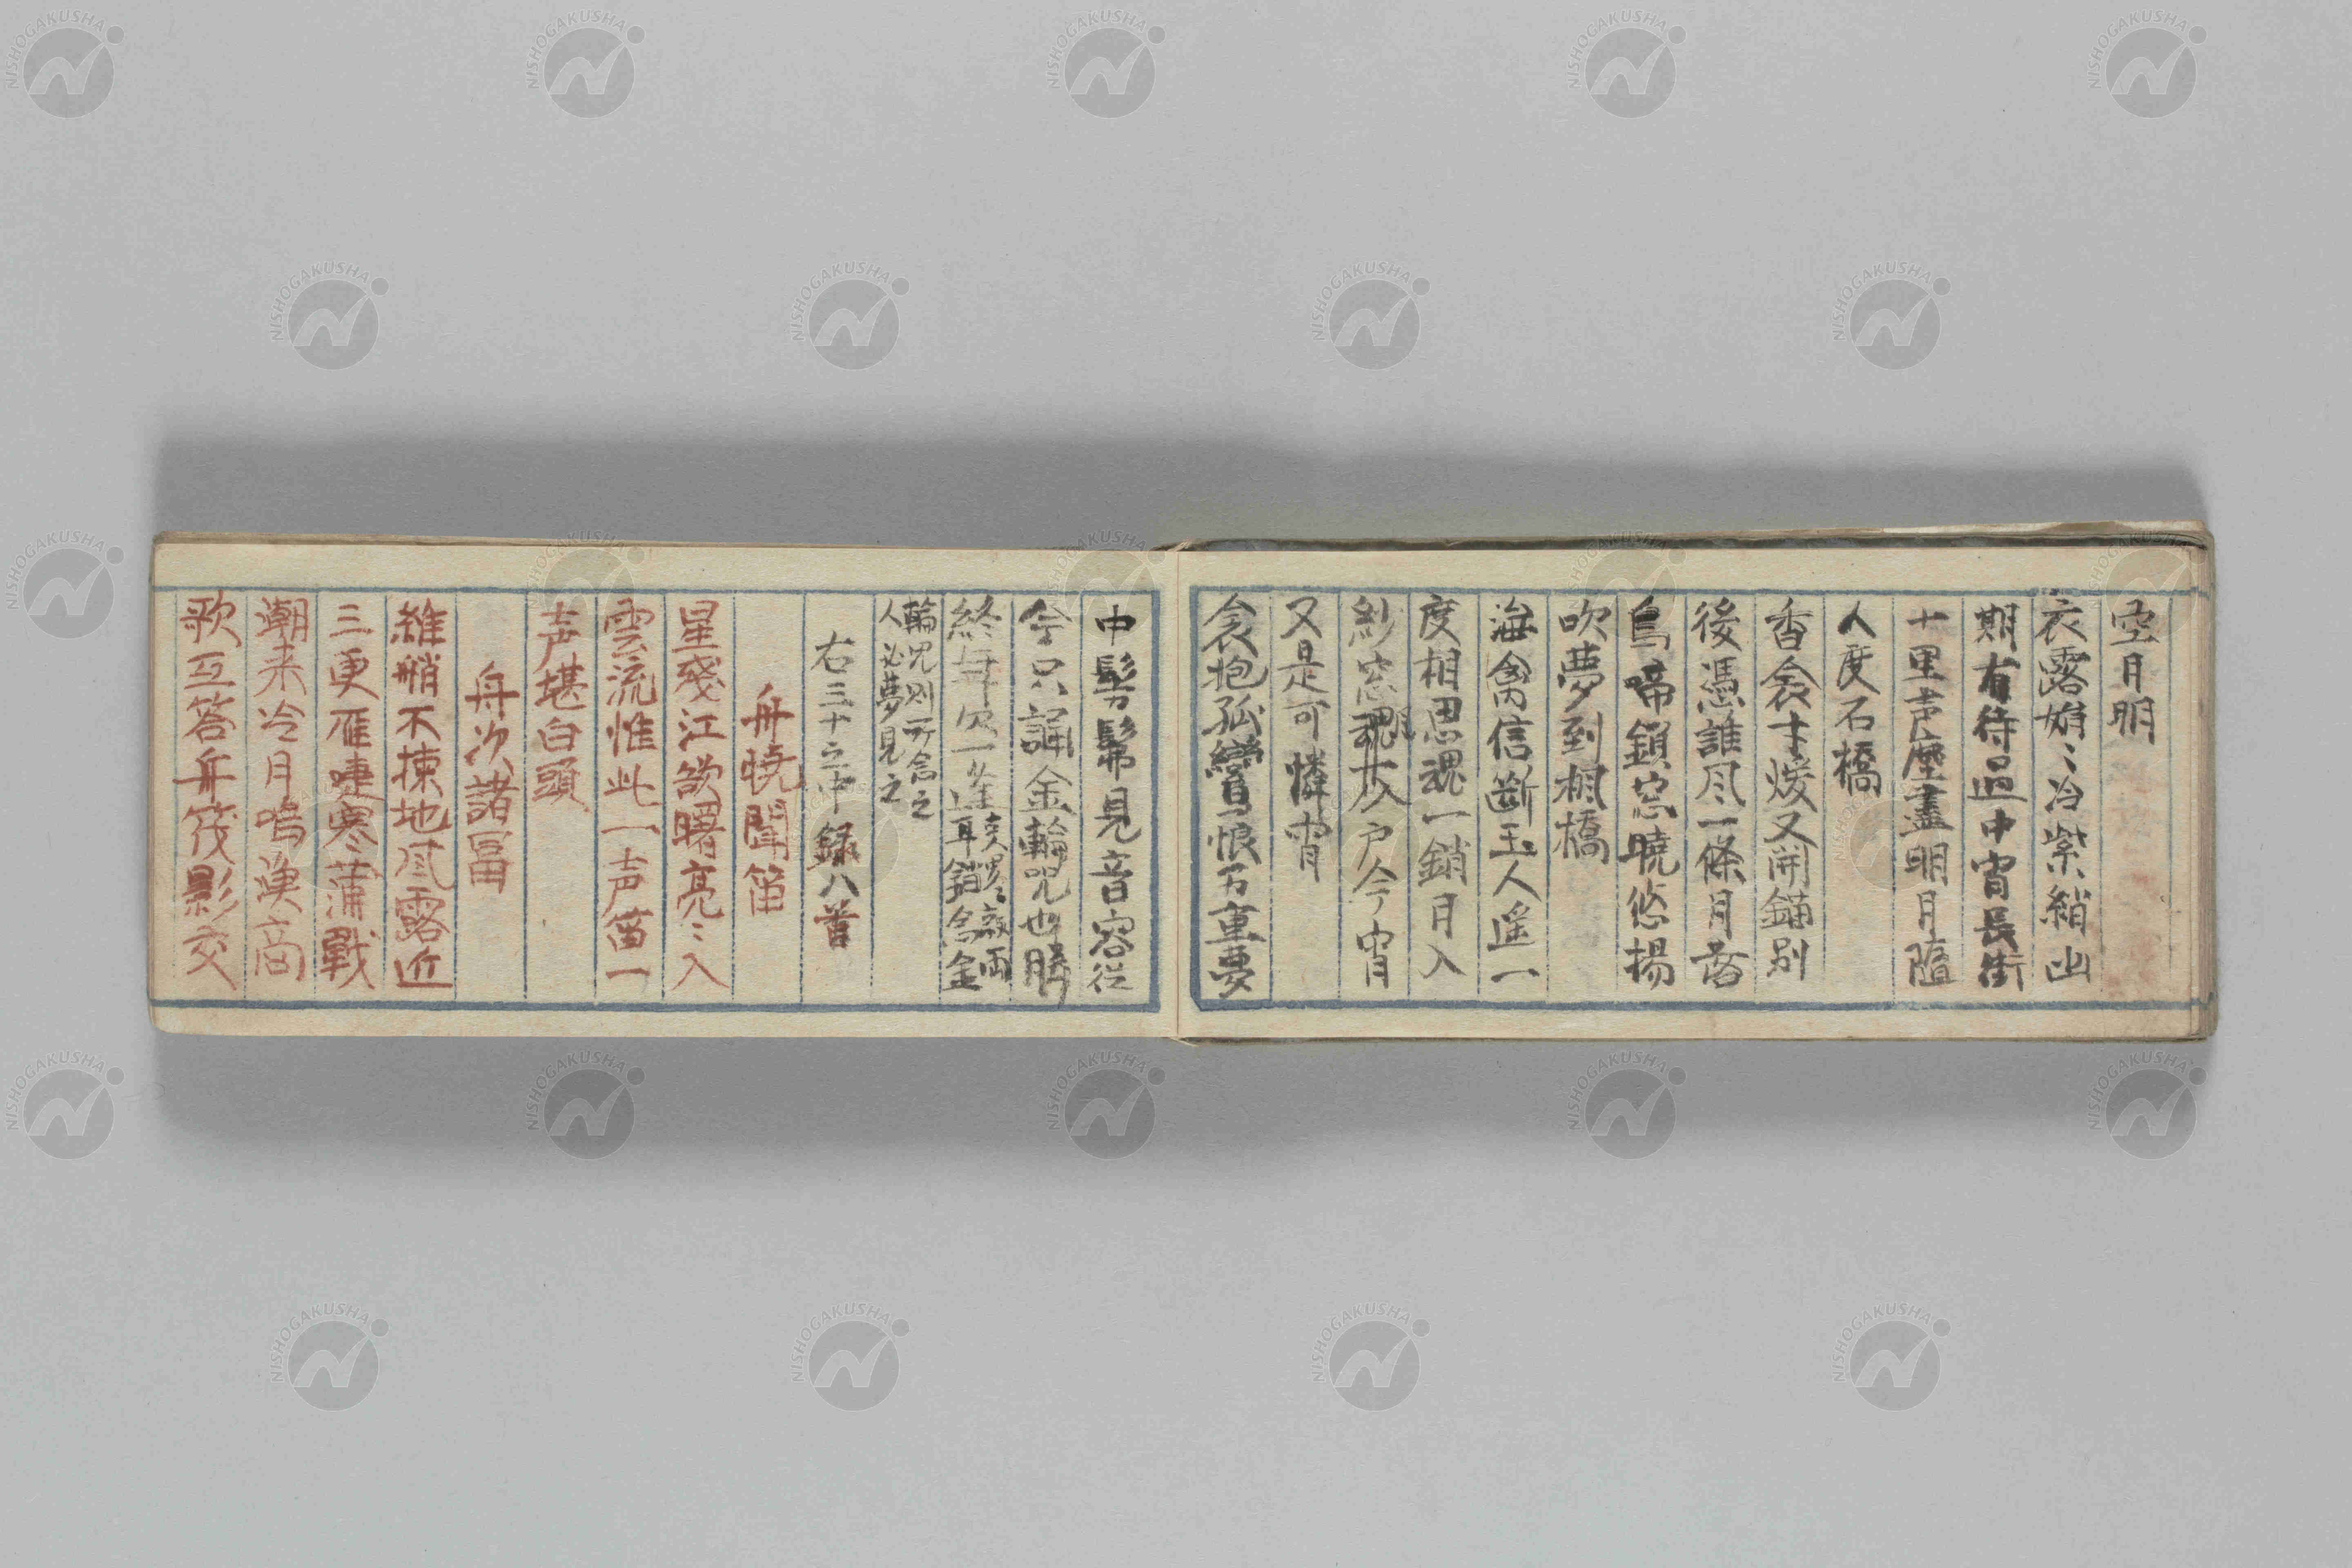 空月明
衣露娟〻冷紫綃幽
期有待温中宵長街
十里声塵盡明月隨
人度石橋
香衾才煖又開錨別
後憑誰风一條月落
烏啼鎖窓曉悠揚
吹夢到楓橋
海禽信断玉人遥一
度相思魂一銷月入
紗窓花入戸今宵
又是可憐宵
衾抱孤鸞恨万重夢
中髣髴見音容従
今只誦金輪呪也勝
終年欠一逢
輪呪則所念之
人必夢見之
右三十之中録八首
舟曉聞笛
星殘江欲曙亮〻入
雲流惟此一声笛一
声堪白頭
舟次諸冨
維艄不揀地风露近
三更雁唳寒蒲戰
潮来冷月鳴漁商
歌互答舟筏影交
NISHOGAKUSHA